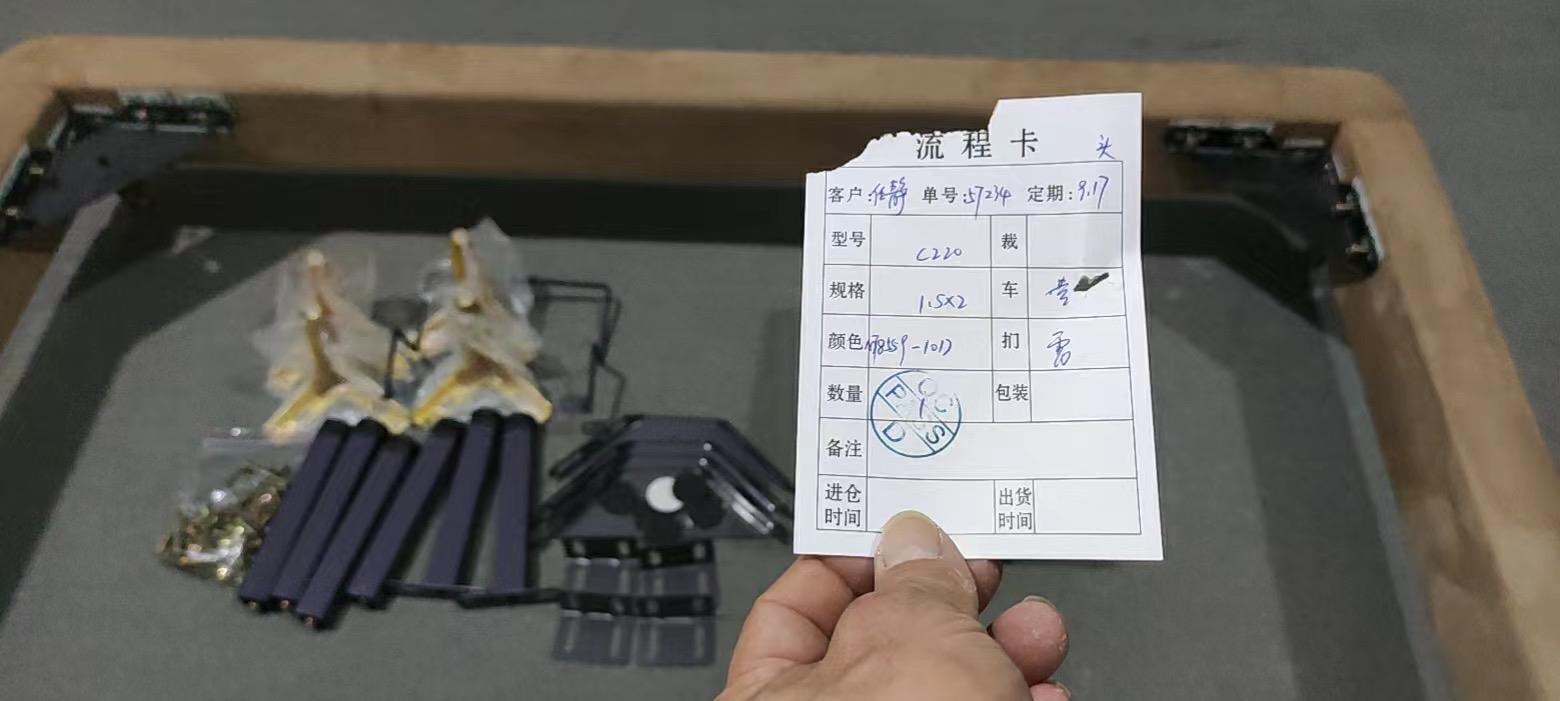 流程卡 头
客户:任静 单号:57234 定期:9.17
型号 C220 裁
规格 1.5X2 车
颜色 -1017 扪 雷
数量 1 包装
备注
进仓时间 出货时间